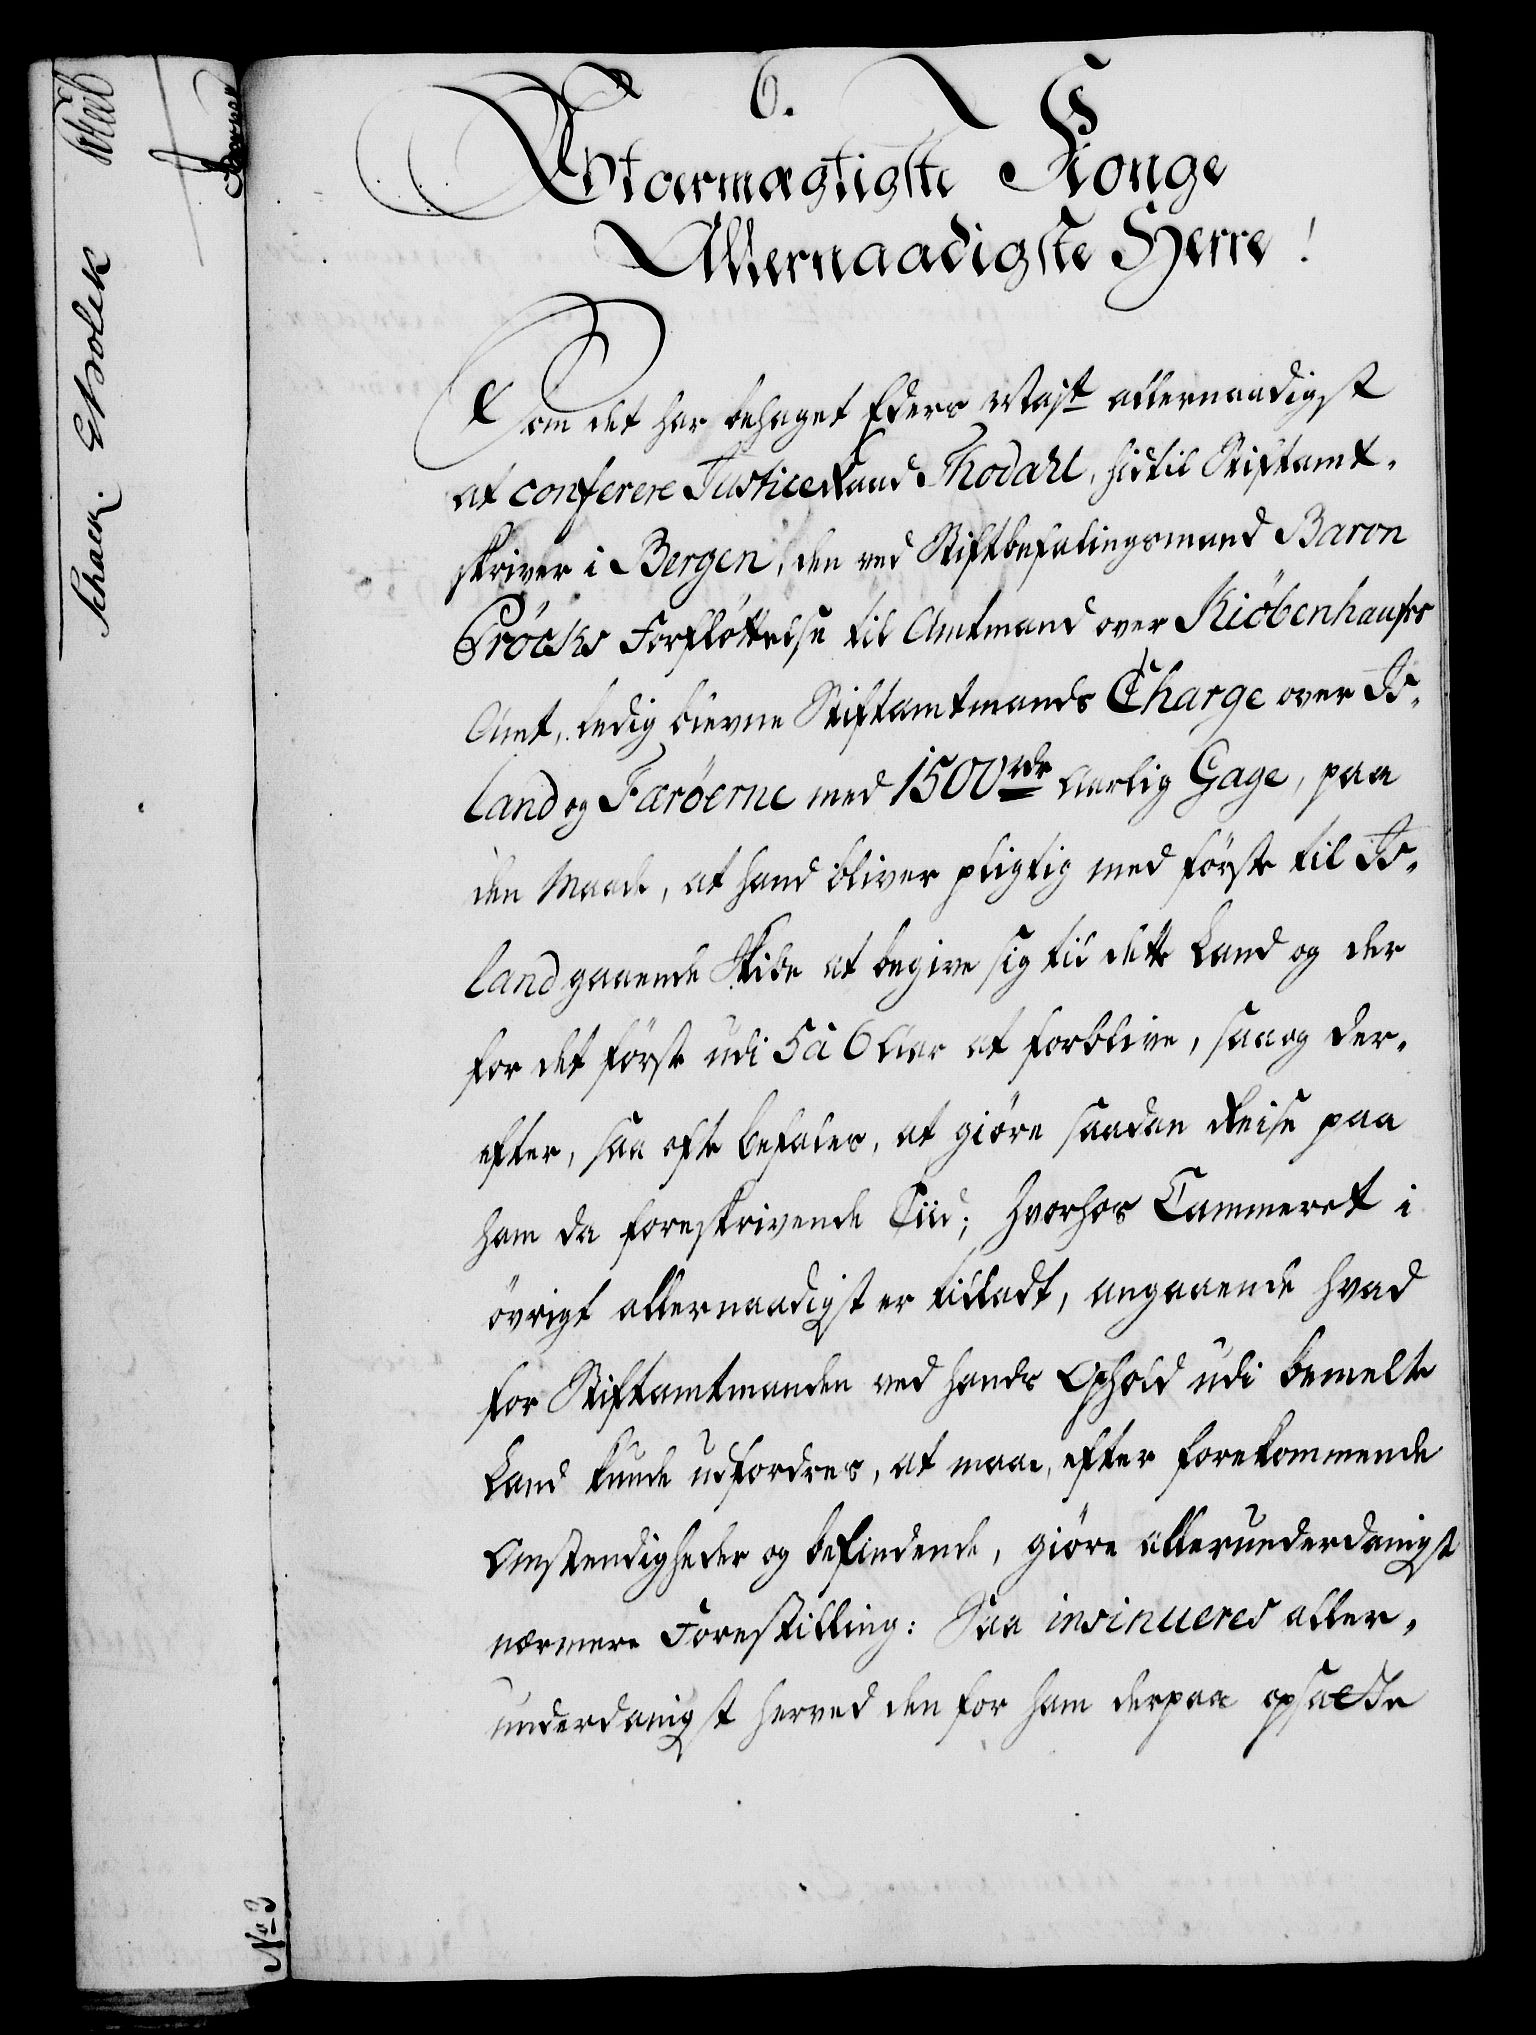 6.
Stormægtigste Konge
Allernaadigste Herre!
Som det har behaget Eders Majt allernaadigst
at conferere Justice Raad Thodahl, hidtil Stiftamt-
skriver i Bergen, den ved Stiftbefalingsmand Baron
Pröcks Forflöttelse til Amtmand over Kiöbenhaufs
Amt, ledig blevne Stiftamtmands Charge over Is-
land og Færöerne med 1500 rdr Aarlig Gage, paa
den Maade, at hand bliver pligtig med förste til Is-
land gaaende Skibe at begive sig til dette Land og der
for det förste udi 5 à 6 Aar at forblive, saa og der-
efter, saa ofte befales, at giöre saadan Reise paa
ham da foreskrivende Tiid; hvorhos Cammeret i
övrigt allernaadigst er tilladt, angaaende hvad
for Stiftamtmanden ved hands Ophold udi bemelte
Land kunde udfordres, at maae, efter forekommende
Omstendigheder og befindende, giöre allerunderdanigst
nærmere Forestilling: Saa insinueres aller-
underdanigst herved den for ham derpaa opsadte
Schack
No 3